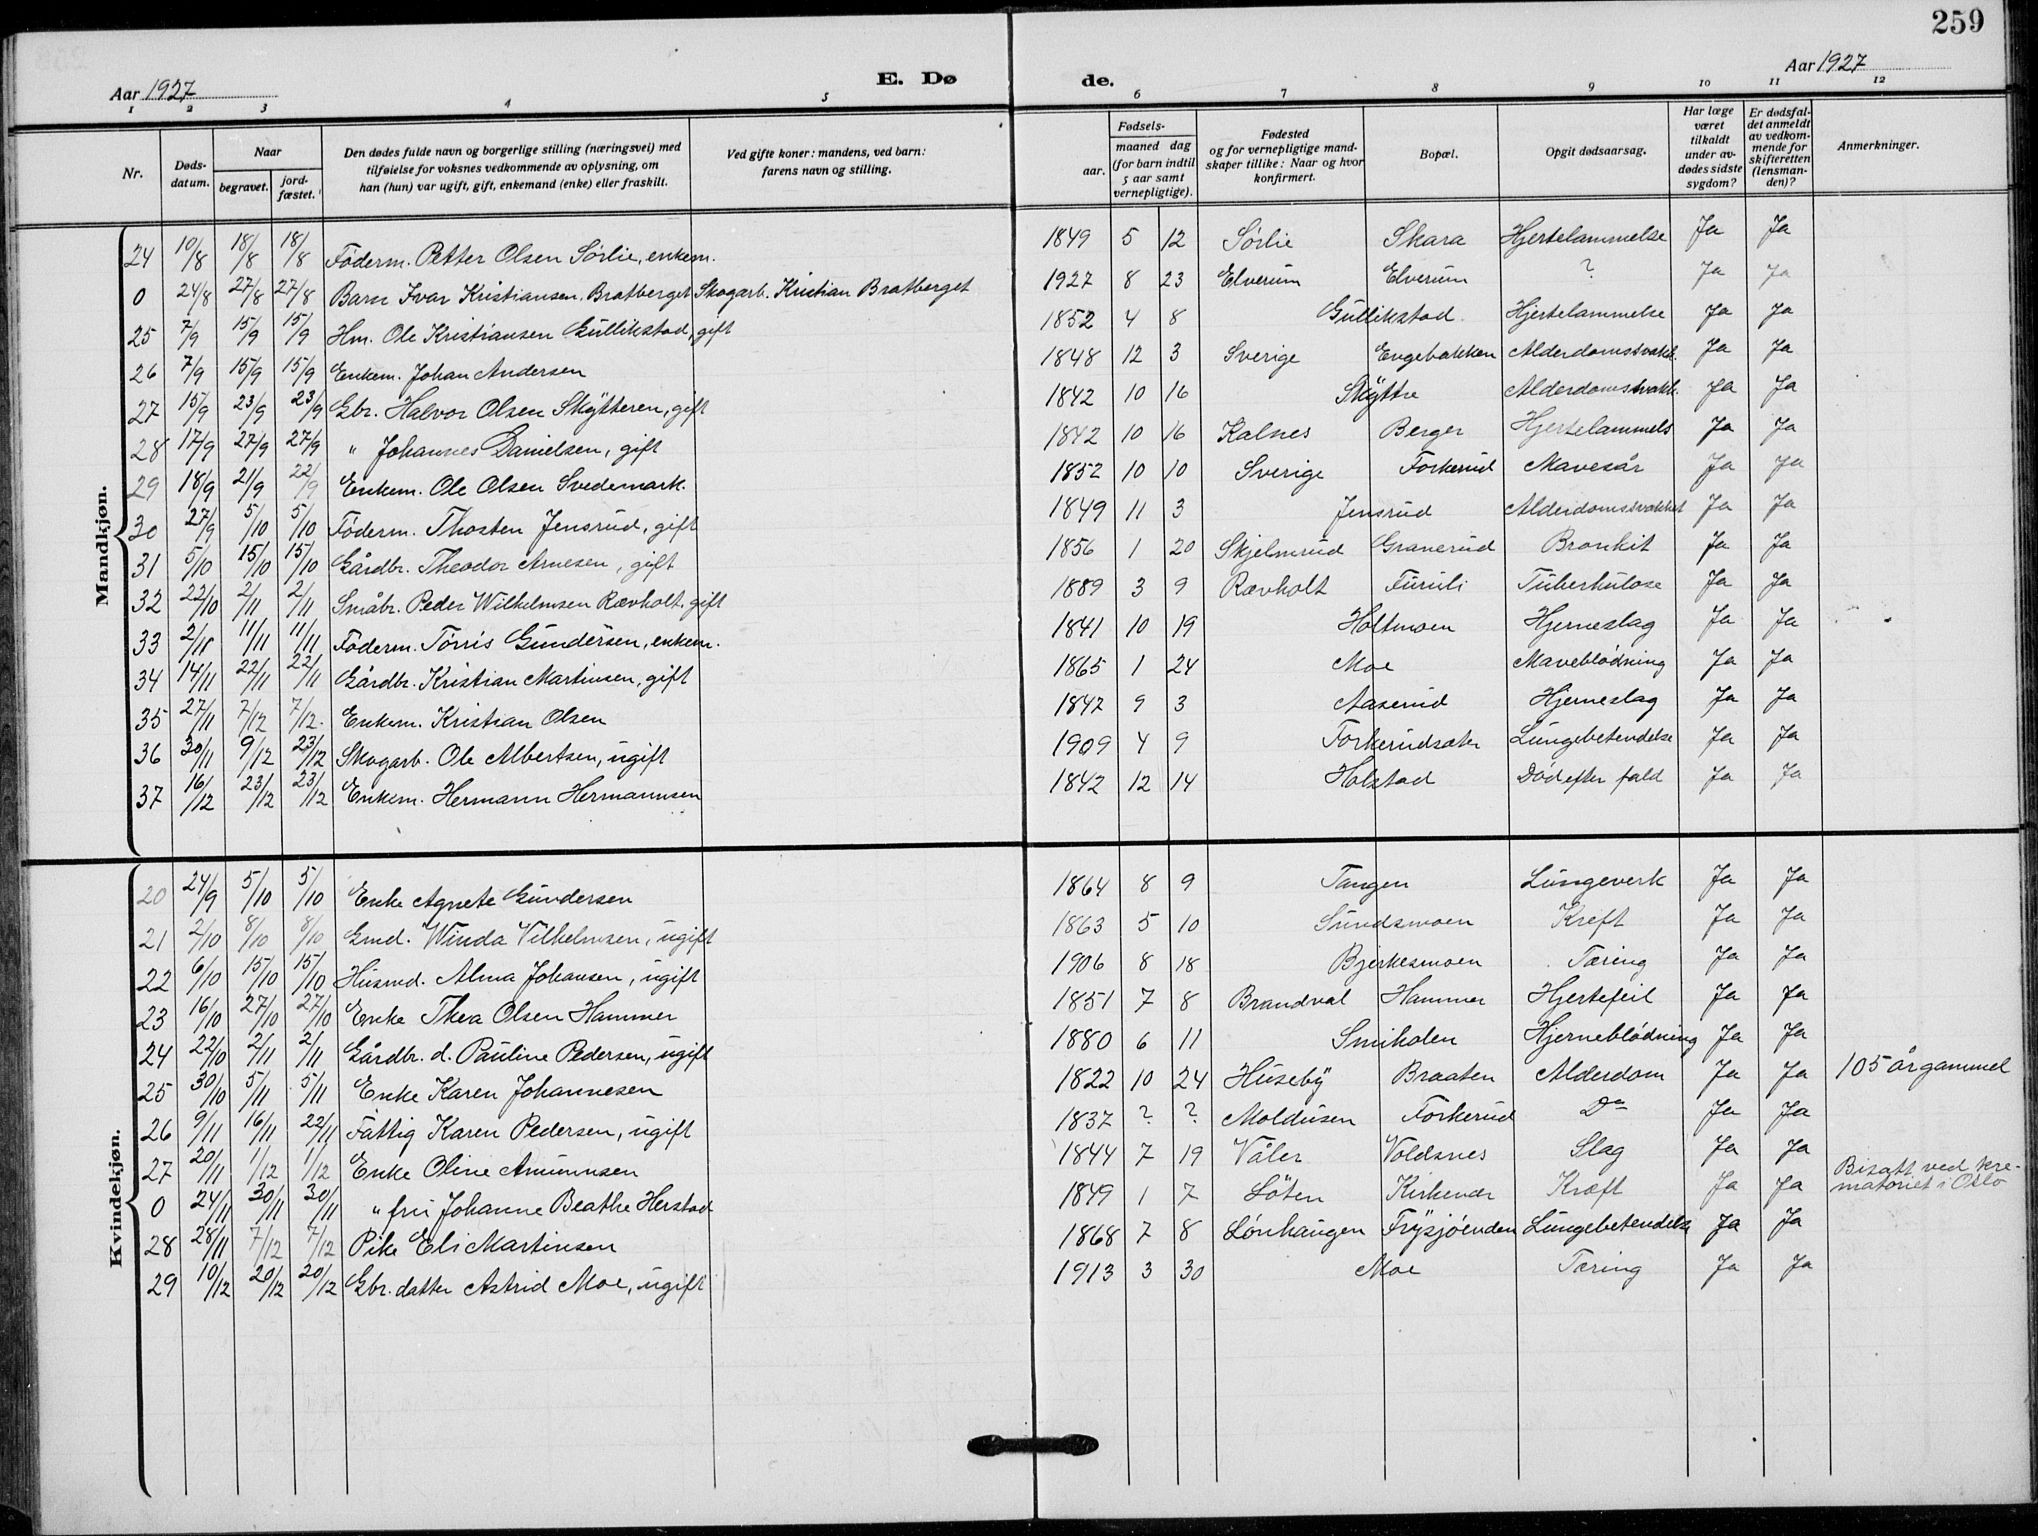 259
Aar 1927 E. Dø de. Aar 1927
1 2 3 4 5 6 7 8 9 10 11 12
Nr. Døds-datum. Naar begravet. jord-fæstet. Den dødes fulde navn og borgerlige stilling (næringsvei) med tilføielse for voksnes vedkommende av oplysning, om han (hun) var ugift, gift, enkemand (enke) eller fraskilt. Ved gifte koner: mandens, ved barn: farens navn og stilling. Fødsels- aar. maaned dag (for barn indtil 5 aar samt vernepligtige). Fødested og for vernepligtige mandskaper tillike: Naar og hvor konfirmert. Bopæl. Opgit dødsaarsag. Har læge været tilkaldt under avdødes sidste sygdom? Er dødsfaldet anmeldt av vedkommende for skifteretten (lensmanden)? Anmerkninger.
Mandkjøn.
24 10/8 18/8 18/8 Föderm. Petter Olsen Sörlie, enkem. 1849 5 12 Sörlie Skara Hjertelammelse Ja Ja
0 24/8 27/8 27/8 Barn Ivar Kristiansen Bratberget Skogarb. Kristian Bratberget 1927 8 23 Elverum Elverum ? Ja Ja
25 7/9 15/9 15/9 Hm. Ole Kristiansen Gullikstad, gift 1852 4 8 Gullikstad. Hjertelammelse Ja Ja
26 7/9 15/9 15/9 Enkem. Johan Andersen 1848 12 3 Sverige Engebakken Alderdomssvakk. Ja Ja
27 15/9 23/9 23/9 Gbr. Halvor Olsen Skÿtteren, gift 1842 10 16 Skÿttre Alderdomssvakk. Ja Ja
28 17/9 27/9 27/9 " Johannes Danielsen, gift 1842 10 16 Kalnes Berger Hjertelammels Ja Ja
29 18/9 21/9 22/9 Enkem. Ole Olsen Svedemark. 1852 10 10 Sverige Forkerud Mavesår Ja Ja
30 27/9 5/10 5/10 Föderm. Thosten Jensrud, gift 1849 11 3 Jensrud Alderdomssvakhet Ja Ja
31 5/10 15/10 15/10 Gårdbr. Theodor Arnesen, gift 1856 1 20 Skjelmrud Granerud Bronkit Ja Ja
32 22/10 2/11 2/11 Småbr. Peder Wilhelmsen Rævholt, gift 1889 3 9 Rævholt Furuli Tuberkulose Ja Ja
33 2/11 11/11 11/11 Föderm. Törris Gundersen, enkem. 1841 10 19 Holtmoen Hjerneslag Ja Ja
34 14/11 22/11 22/11 Gårdbr. Kristian Martinsen, gift 1865 1 24 Moe Maveblödning Ja Ja
35 27/11 7/12 7/12. Enkem. Kristian Olsen 1847 9 3 Aaserud Hjerneslag Ja Ja
36 30/11 9/12 23/12 Skogarb. Ole Albertsen, ugift 1909 4 9 Forkerudsæter Lungebetendelse Ja Ja
37 16/12 23/12 23/12 Enkem. Hermann Hermannsen 1842 12 14 Holstad Död efter fald Ja Ja
Kvindekjøn.
20 24/9 5/10 5/10 Enke Agnete Gundersen 1864 8 9 Tangen Lungeverk Ja Ja
21 2/10 8/10 8/10 Gmd. Winda Vilhelmsen, ugift 1863 5 10 Sundsmoen Kreft Ja Ja
22 6/10 15/10 15/10 Husmd. Alma Johansen, ugift 1906 8 18 Bjerkesmoen Tæring Ja Ja
23 16/10 27/10 27/10 Enke Thea Olsen Hammer 1851 7 8 Brandval Hammer Hjertefeil Ja Ja
24 22/10 2/11 2/11 Gårdbr. d. Pauline Pedersen, ugift 1880 6 11 Smiholen Hjerneblödning Ja Ja
25 30/10 5/11 5/11 Enke Karen Johannesen 1822 10 24 Husebÿ Braaten Alderdom Ja Ja 105 år gammel
26 9/11 16/11 22/11 Fattig Karen Pedersen, ugift 1837 ? ? Moldusen Forkerud Do Ja Ja
27 20/11 1/12 1/12 Enke Oline Amunnsen 1844 7 19 Våler Voldsnes Slag Ja Ja
0 24/11 30/11 30/11 " fru Johanne Beathe Herstad 1849 1 7 Löten Kirkenær Kræft Ja Ja Bisatt ved krematoriet i Oslo
28 28/11 7/12 7/12 Pike Eli Martinsen 1868 7 8 Lönhaugen Frÿsjöenden Lungebetendelse Ja Ja
29 10/12 20/12 20/12 Gbr. datter Astrid Moe, ugift 1913 3 30 Moe Tæring Ja Ja